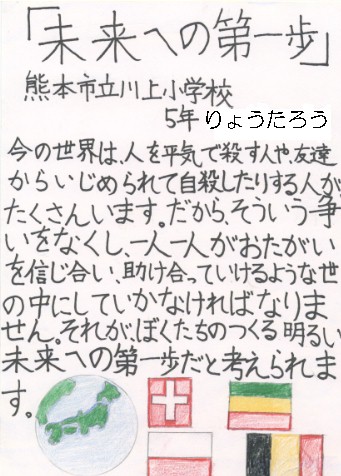 「未来への第一歩」
熊本市立川上小学校
5年 りょうたろう
今の世界は、人を平気で殺す人や、友達
からいじめられて自殺したりする人が、
たくさんいます。だから、そういう争
いをなくし、一人一人がおたがい
を信じ合い、助け合っていけるような世
の中にしていかなければなりま
せん。それが、ぼくたちのつくる明るい
未来への第一歩だと考えられま
す。